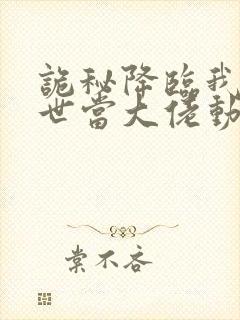 詭秘降臨我
世當大佬動
棠不吝